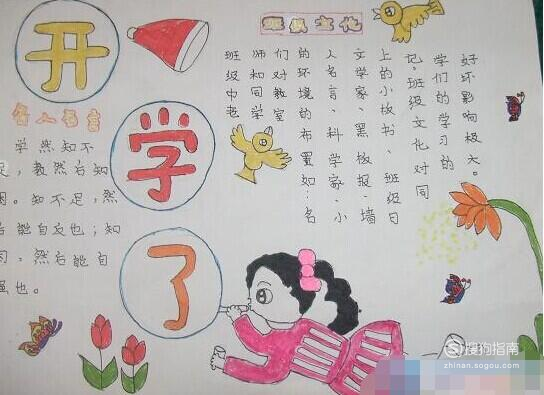 开
学
了
名人名言
学然知不
足，教然后知
困。知不足，然
后能自文也；知
困，然后能自
强也。
班级文化
班级中老
师和同学
们对教室
的环境的布置如：名
人名言、科学家、小
文学家、黑板报、墙
上的小板书、班级日
记。班级文化对同
学们的学习的
好坏影响极大。
搜狗指南
zhinan.sogou.com